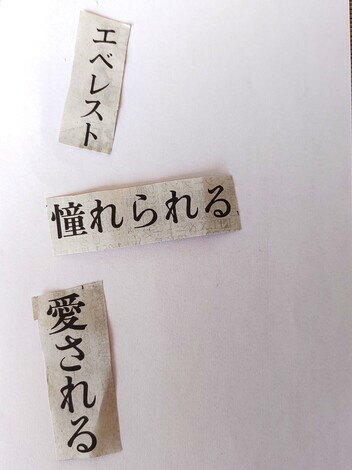 エベレスト
憧れられる
愛される